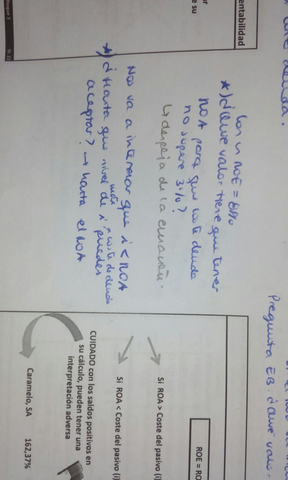 entabilidad
Con un ROE = 68%
*) ¿Que valor tiene que tener
ROA para que coste deuda
no supere 3%?
↳ despeja de la ecuación.
Nos va a interesar que i < ROA
*) ¿Hasta que nivel de i puedes
aceptar? → hasta el ROA
Pregunta EB ¿Que valor
ROE = RO
Si ROA > Coste del pasivo (i)
Si ROA < Coste del pasivo (i)
CUIDADO con los saldos positivos en
su cálculo, pueden tener una
interpretación adversa
Caramelo, SA 162,37%